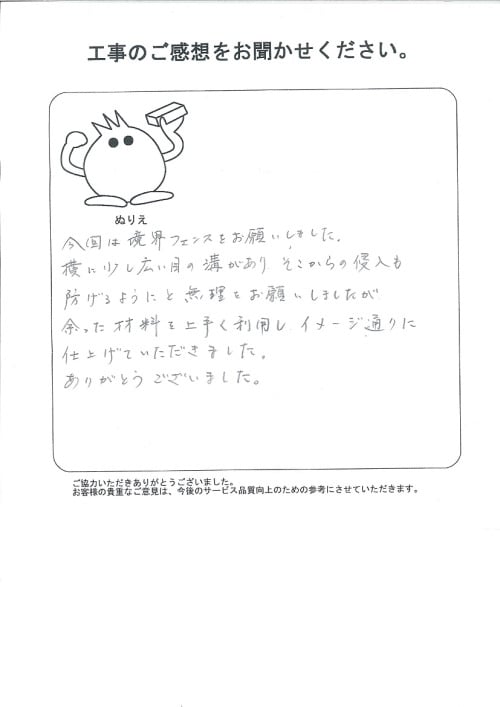 工事のご感想をお聞かせください。
ぬりえ
今回は境界フェンスをお願いしました。
横に少し広い目の溝があり そこからの侵入も
防げるようにと無理をお願いしましたが
余った材料を上手く利用し イメージ通りに
仕上げていただきました。
ありがとうございました。
ご協力いただきありがとうございました。
お客様の貴重なご意見は、今後のサービス品質向上のための参考にさせていただきます。